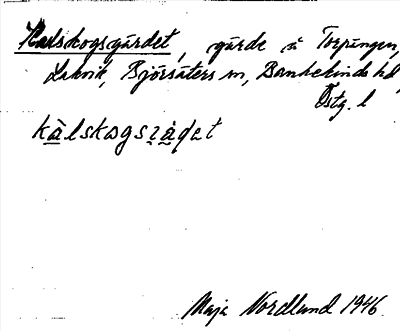 Kalskogsgärdet, gärde å Torpingen,
Lakvik, Björsäters sn, Bankekinds hd,
Östg. l
kàlskogsɿàdet
Maja Nordlund 1946